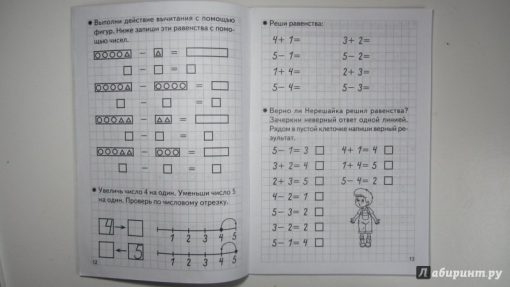 Выполни действие вычитания с помощью
фигур. Ниже запиши эти равенства с помо-
щью чисел.
− =
− =
− =
− =
− =
− =
− =
− =
Увеличь число 4 на один. Уменьши число 5
на один. Проверь по числовому отрезку.
4 → 1 2 3 4 5
← 5 1 2 3 4 5
12
Реши равенства:
4+ 1= 3+ 2=
5− 1= 5− 2=
1+ 4= 2+ 3=
5− 3= 5− 4=
Верно ли Нерешайка решил равенства?
Зачеркни неверный ответ одной линией.
Рядом в пустой клеточке напиши верный ре-
зультат.
5− 1= 3 4+ 1= 4
3+ 2= 4 1+ 4= 5
2+ 3= 5 5− 4= 2
4− 2= 1
5− 3= 2
3− 2= 2
5− 1= 4
13
Лабиринт.ру